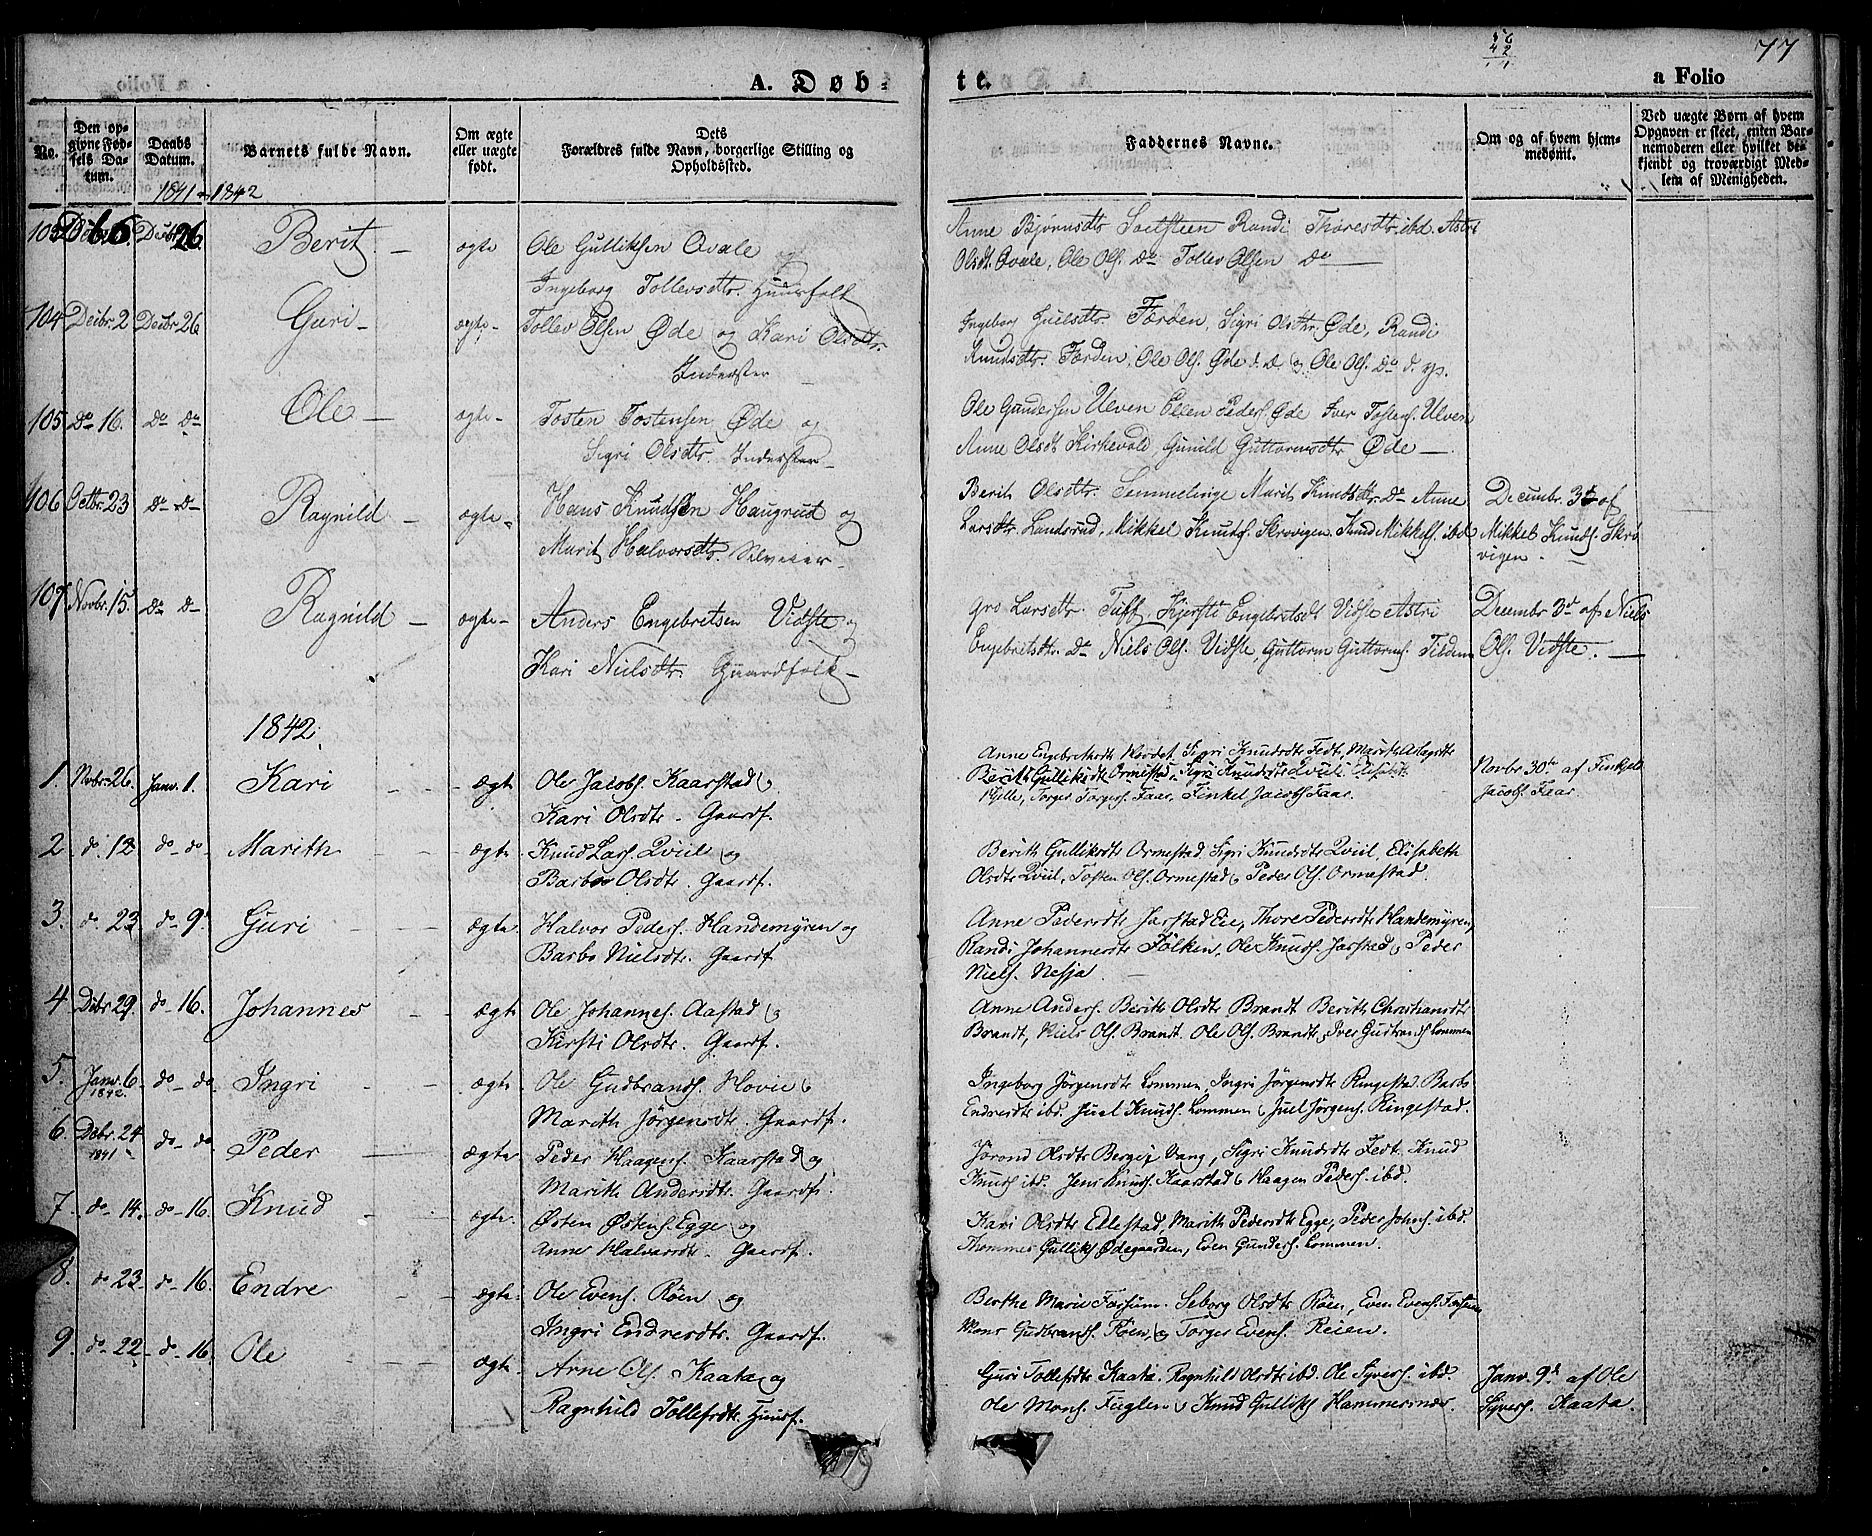 77
A. Døbte.
a Folio
No.
Den opgivne Fødsels Datum.
Daabs Datum.
Barnets fulde Navn.
Om ægte eller uægte født.
Dets Forældres fulde Navn, borgerlige Stilling og Opholdssted.
Faddernes Navne.
Om og af hvem hjemmedømt.
Ved uægte Børn af hvem Opgaven er skeet, enten Barnemoderen eller hvilket bekjendt og troværdigt Medlem af Menigheden.
1841 1842
103 Decbr. 6 Decbr 26 Berit — ægte Ole Gulliksen Qvale og
Ingeborg Tollevsdtr. Huusfolk
Anne Bjørnsdtr Sælsteen Randi Thoresdtr. ibd. Astri
Olsdt. Qvale, Ole Ols. Do Tollev Olsen Do —
104 Decbr. 2 Decbr 26 Guri — ægte — Tollev Olsen Øde og Kari Olsdtr.
Inderster
Ingeborg Juelsdtr. Førden, Sigri Olsdtr. Øde, Randi
Knudsdtr. Førden, Ole Ols. Øde d. Æ. og Ole Ols. Do d. y.
105 Do 16. Do Do Ole — ægte — Tosten Tostensen Øde og
Sigri Olsdtr. Inderster —
Ole Gundersen Ulven Ellen Peders. Øde Iver Tostens. Ulven
Anne Olsdt Kirkevold, Gunild Guttormsdtr Øde —
106 Octbr. 23 Do Do Ragnild — ægte — Hans Knudsen Haugrud og
Marit Halvorsdtr. Selveier —
Berit Olsdtr. Semmelinge Marit Knudsdtr. Do Anne
Larsdtr. Landsrud, Mikkel Knuds. Skrøvigen Knud Mikkels. ibd
Decembr. 3die af
Mikkel Knuds. Skrø
vigen —
107 Novbr. 15. Do Do Ragnild — ægte — Anders Engebretsen Vidste og
Kari Nielsdtr. Gaardfolk —
Gro Larsdtr. Tuff, Kjersti Engebretsdt Vidste Astri
Engebretsdtr. Do Niels Ols. Vidste, Guttorm Guttorms.
Decembr 3de af Niels
Ols. Vidste. —
1842.
1. Novbr. 26. Janv. 1. Kari — ægte Ole Jacobs. Kaarstad og
Kari Olsdtr. Gaardf.
Anne Engebretsdt Sigri Knudsdtr Fedt, Marith
Berith Gulliksdtr Ormestad, Sigri Knudsdtr Qviil, Elisabeth
Hylle, Torger Torgers. Faar, Finkel Jacobs Faar.
Novbr 30te af Finkel
Jacobs. Faar.
2 do 12 do — do Marith — ægte Knud Lars. Qviil og
Barbro Olsdtr. Gaardf.
Berith Gulliksdtr Ormestad, Sigri Knudsdtr Qviil, Elisabeth
Olsdtr Qviil, Tosten Ols. Ormestad og Peder Ols. Ormestad.
3. do 23 do — 9. Guri — ægte. Halvor Peders. Handemyren og
Barbo Nielsdtr. Gaardf
Anne Pedersdtr Jarstad Eie, Thore Pedersdtr Handemyren,
Randi Johannesdtr Følken, Ole Knuds. Jarstad og Peder
Niels. Nesja. —
4 Dcbr 29. do — 16. Johannes — ægte Ole Johannes. Aastad og
Kirsti Olsdtr. Gaardf.
Anne Anders. Berith Olsdtr Brandt Berith Christiansdtr
Brandt, Niels Ols. Brandt, Ole Ols. Brandt, Iver Gudbrands Lommen
5. Janv. 6 1842. do — do Ingri — ægte Ole Gudbrands. Hovie og
Marith Jørgensdtr. Gaardf.
Ingeborg Jørgensdtr Lommen, Ingri Jørgensdtr Ringestad, Barbo
Endresdtr ibd. Juel Knuds. Lommen og Juel Jørgens. Ringestad.
6. Debr. 24 1841 do — do Peder — ægte Peder Haagens. Kaarstad og
Marith Andersdtr. Gaardf.
Jørond Olsdtr Berge i Vang, Sigri Knudsdtr Fedt, Knud
Knuds ibd. Jens Knuds. Kaarstad og Haagen Peders. ibd.
7. do — 14. do — 16. Knud — ægte. Østen Østens. Egge og
Anne Halvorsdtr. Gaardf.
Kari Olsdtr Ellestad, Marith Pedersdtr Egge, Peder Johns. ibd.
Thommes Gulliks Ødegaarden, Even Gunders. Lommen.
8. do 23. do — 16. Endre — ægte. Ole Evens. Røen og
Ingri Endresdtr. Gaardf.
Berthe Marie Forsum. Seborg Olsdtr Røen, Even Evens.
Mons Gudbrands. Røen, og Torger Evens. Reien.
9. do — 22. do — 16. Ole — ægte. Arne Ols. Kaata og
Ragnhild Tollefsdtr. Huusf.
Guri Tollefsdtr Kaata, Ragnhild Olsdtr ibd. Ole Syvers. ibd.
Ole Mons. Fuglen og Knud Gulliks Hammersnæs.
Janv. 9de af Ole
Syvers. Kaata.